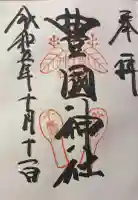 奉拝
豊國神社
令和五年十月十一日